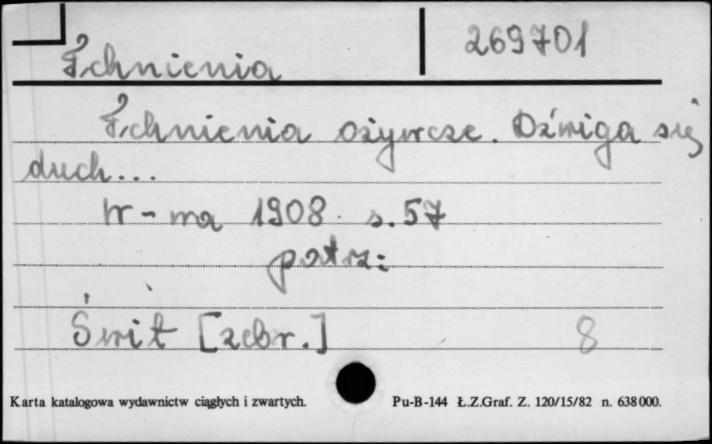 Tchnienia 269701
Tchnienia ożywcze. Dźwiga się
duch...
W-wa 1908. s. 57
patrz:
Świt [zebr.] 8
Karta katalogowa wydawnictw ciągłych i zwartych. Pu-B-144 Ł.Z.Graf. Z. 120/15/82 n. 638 000.